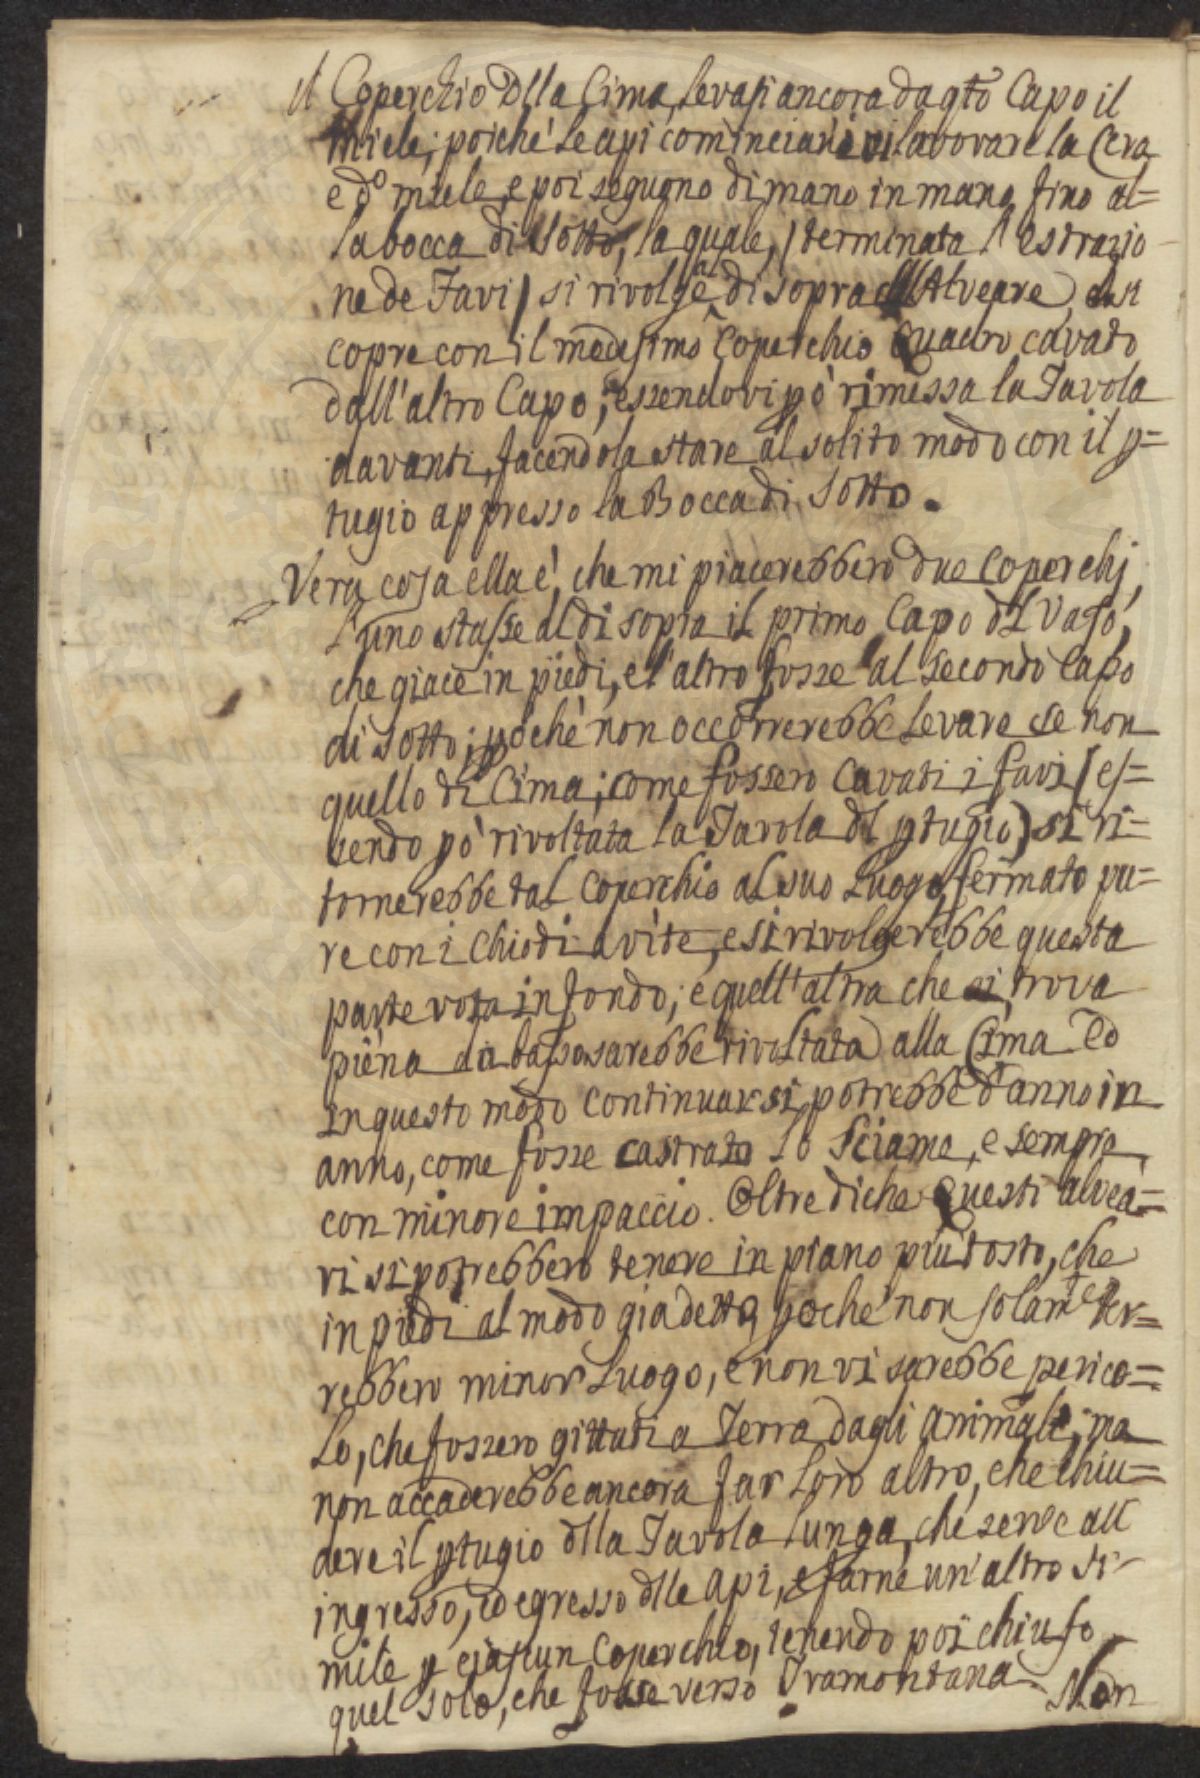 il Coperchio dlla Cima, levasi ancora da qto Capo il
Miele; poiché le api cominciano vi lavorare la Cera
e do miele, e poi seguono di mano in mano fino al=
la bocca di sotto, la quale, (terminata l'estrazio
ne de Favi) si rivolge di sopra all'Alveare, e si
copre con il medesimo Coperchio Quadro cavato
dall'altro Capo; essendovi pò rimessa la Tavola
davanti, facendola stare al solito modo con il p=
tugio appresso la Bocca di sotto.
Vera cosa ella è, che mi piacerebbero due Coperchj,
l'uno stasse al di sopra il primo Capo dl Vaso,
che giace in piedi, e l'altro fosse al secondo Capo
di sotto; pochè non occorrerebbe levare se non
quello di Cima; come fossero Cavati i favi (es=
sendo pò rivoltata la Tavola dl ptugio) si ri=
tornerebbe tal Coperchio al suo Luogo, fermato pu=
re con i Chiodi a vite, e si rivolgerebbe questa
parte vota in fondo; e quell'altra che si trova
piena da basso sarebbe rivoltata alla Cima Ed
in questo modo continuar si potrebbe d'anno in
anno, come fosse castrato lo Sciame, e sempre
con minore impaccio. Oltre di che Questi alvea=
ri si potrebbero tenere in piano più tosto, che
in piedi al modo gia detto, pochè non solamte ter=
rebbero minor Luogo, e non vi sarebbe perico=
lo, che fossero gittati a Terra dagli animali; ma
non accaderebbe ancora far Loro altro, che chiu=
dere il ptugio dlla Tavola lunga, che serve all'
ingresso, ed egresso dlle api, e farne un'altro si=
mile p ciascun Coperchio, tenendo poi chiuso
quel solo, che fosse verso Tramontana. Non